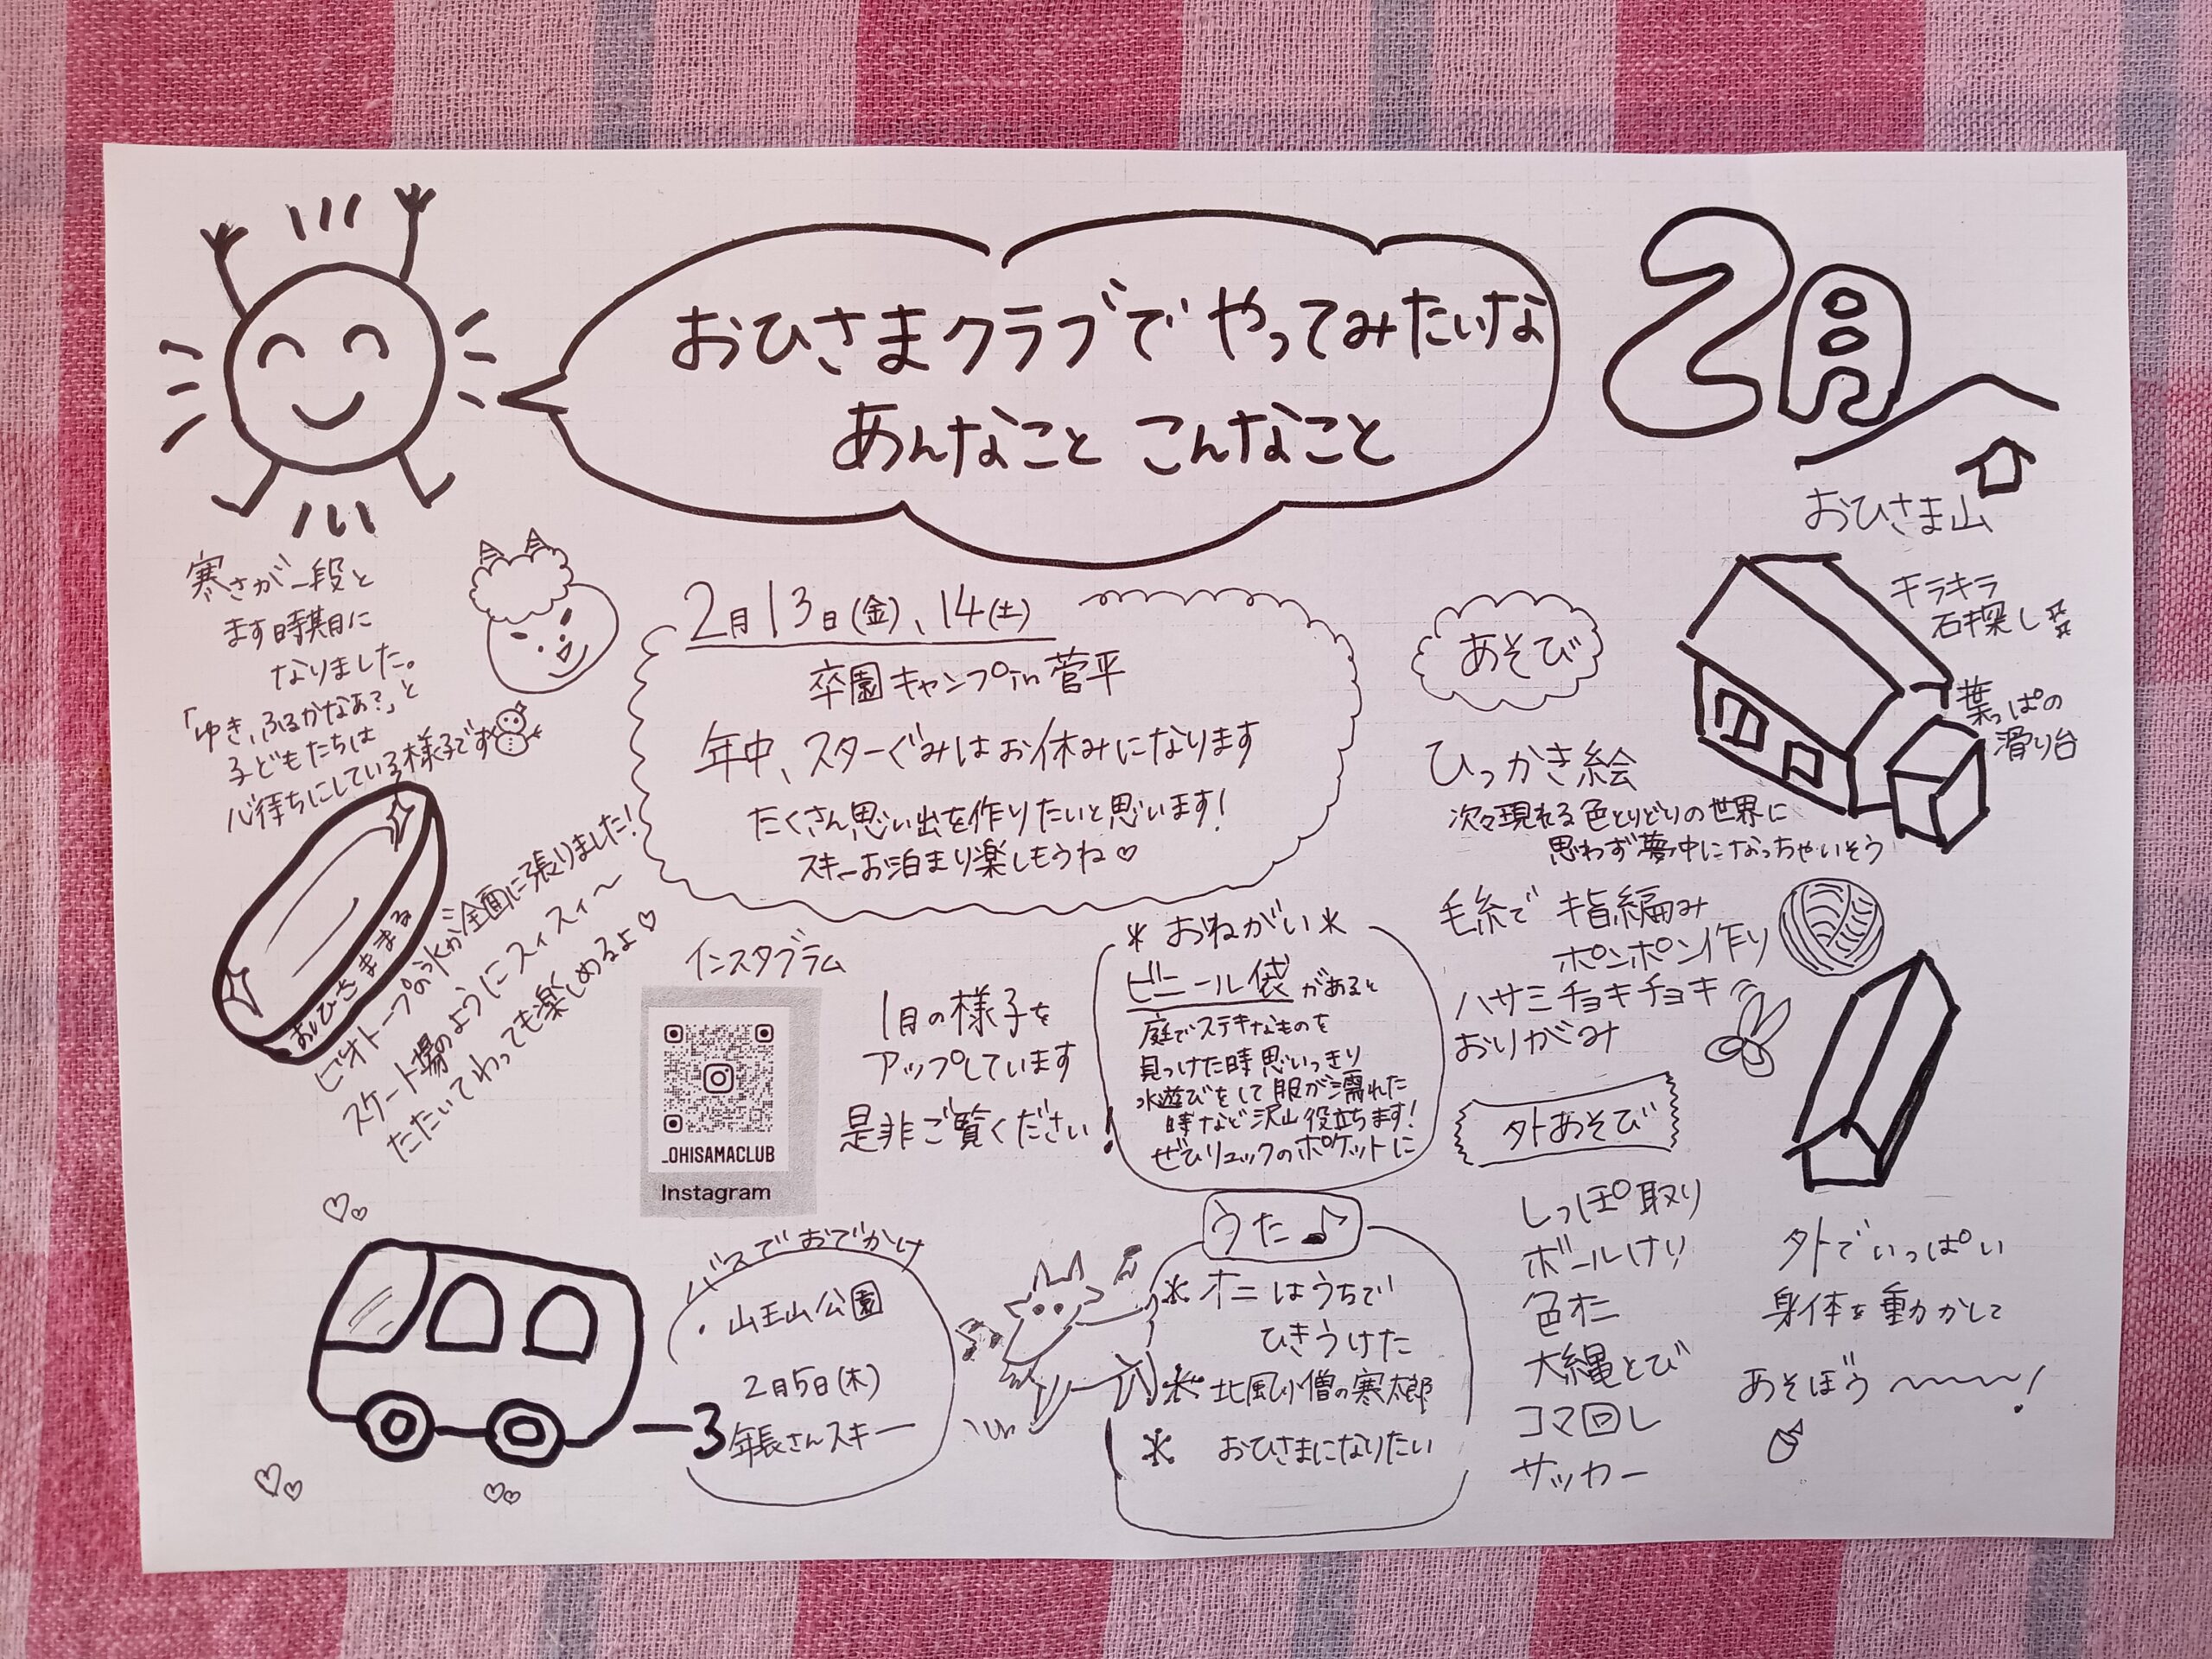 おひさまクラブで やってみたいな
あんなこと こんなこと
2月
おひさま山
寒さが一段と
ます時期に
なりました。
「ゆき、ふるかなぁ？」と
子どもたちは
心待ちにしている様子です
おひさままる
ビオトープの氷が全面に張りました！
スケート場のようにスィスィ〜
たたいてわっても楽しめるよ♡
2月13日(金)、14(土)
卒園キャンプin菅平
年中、スターぐみはお休みになります
たくさん思い出を作りたいと思います！
スキーお泊まり楽しもうね♡
インスタグラム
_OHISAMACLUB
Instagram
1月の様子を
アップしています
是非ご覧ください！
＊おねがい＊
ビニール袋があると
庭でステキなものを
見つけた時 思いっきり
水遊びをして 服が濡れた
時など 沢山役立ちます！
ぜひリュックのポケットに
バスでおでかけ
・山王山公園
2月5日(木)
年長さんスキー
うた♪
＊オニはうちで
ひきうけた
＊北風小僧の寒太郎
＊おひさまになりたい
あそび
キラキラ
石探し
葉っぱの
滑り台
ひっかき絵
次々現れる色とりどりの世界に
思わず夢中になっちゃいそう
毛糸で 指編み
ポンポン作り
ハサミチョキチョキ
おりがみ
外あそび
しっぽ取り
ボールけり
色オニ
大縄とび
コマ回し
サッカー
外でいっぱい
身体を動かして
あそぼう〜〜〜！